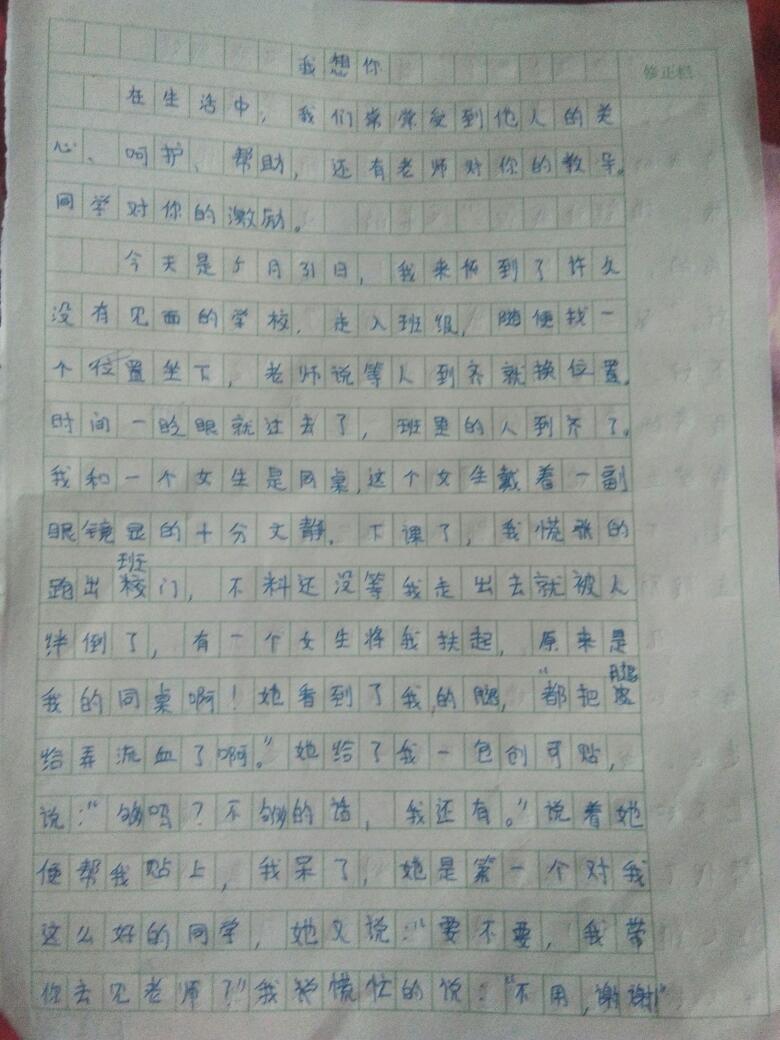 我想你
修正栏
在生活中，我们常常受到他人的关
心、呵护、帮助，还有老师对你的教导。
同学对你的激励。
今天是5月31日，我来到了许久
没有见面的学校，走入班级，随便找一
个位置坐下，老师说等人到齐就换位置。
时间一眨眼就过去了，班里的人到齐了。
我和一个女生是同桌，这个女生戴着一副
眼镜显的十分文静。下课了，我慌张的
跑出班门，不料还没等我走出去就被人
绊倒了，有一个女生将我扶起，原来是
我的同桌啊！她看到了我的腿，“都把腿皮
给弄流血了啊。”她给了我一包创可贴，
说：“够吗？不够的话，我还有。”说着她
便帮我贴上，我呆了，她是第一个对我
这么好的同学，她又说：“要不要，我带
你去见老师？”我慌忙的说：“不用，谢谢”